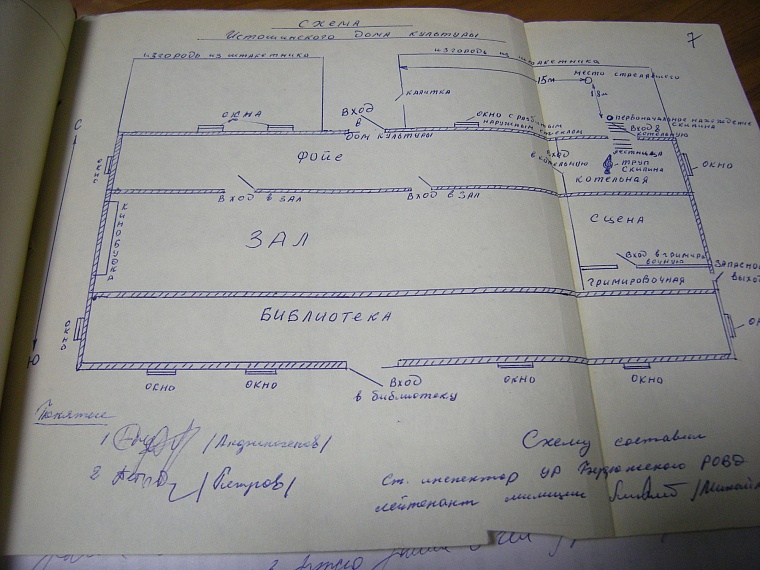 Схема
Истошинского дома культуры
7
изгородь из штакетника
изгородь из штакетника
15м
место стрелявшего
1.8м
калитка
окна
Вход
в
дом культуры
окно с разбитым
наружным стеклом
первоначальное нахождение
Скипина
Вход в
котельную
лестница
труп
Скипина
вход
в котельную
котельная
окно
С
окно
фойе
Вход в зал
Вход в зал
сцена
кинобудка
ЗАЛ
Вход в гримиро
вочную
запасной
выход
гримировочная
библиотека
окно
Ю
ок
окно
окно
окно
окно
Вход
в библиотеку
Понятые
1
2 /Петров/
Схему составил
Ст. инспектор УР РОВД
лейтенант милиции